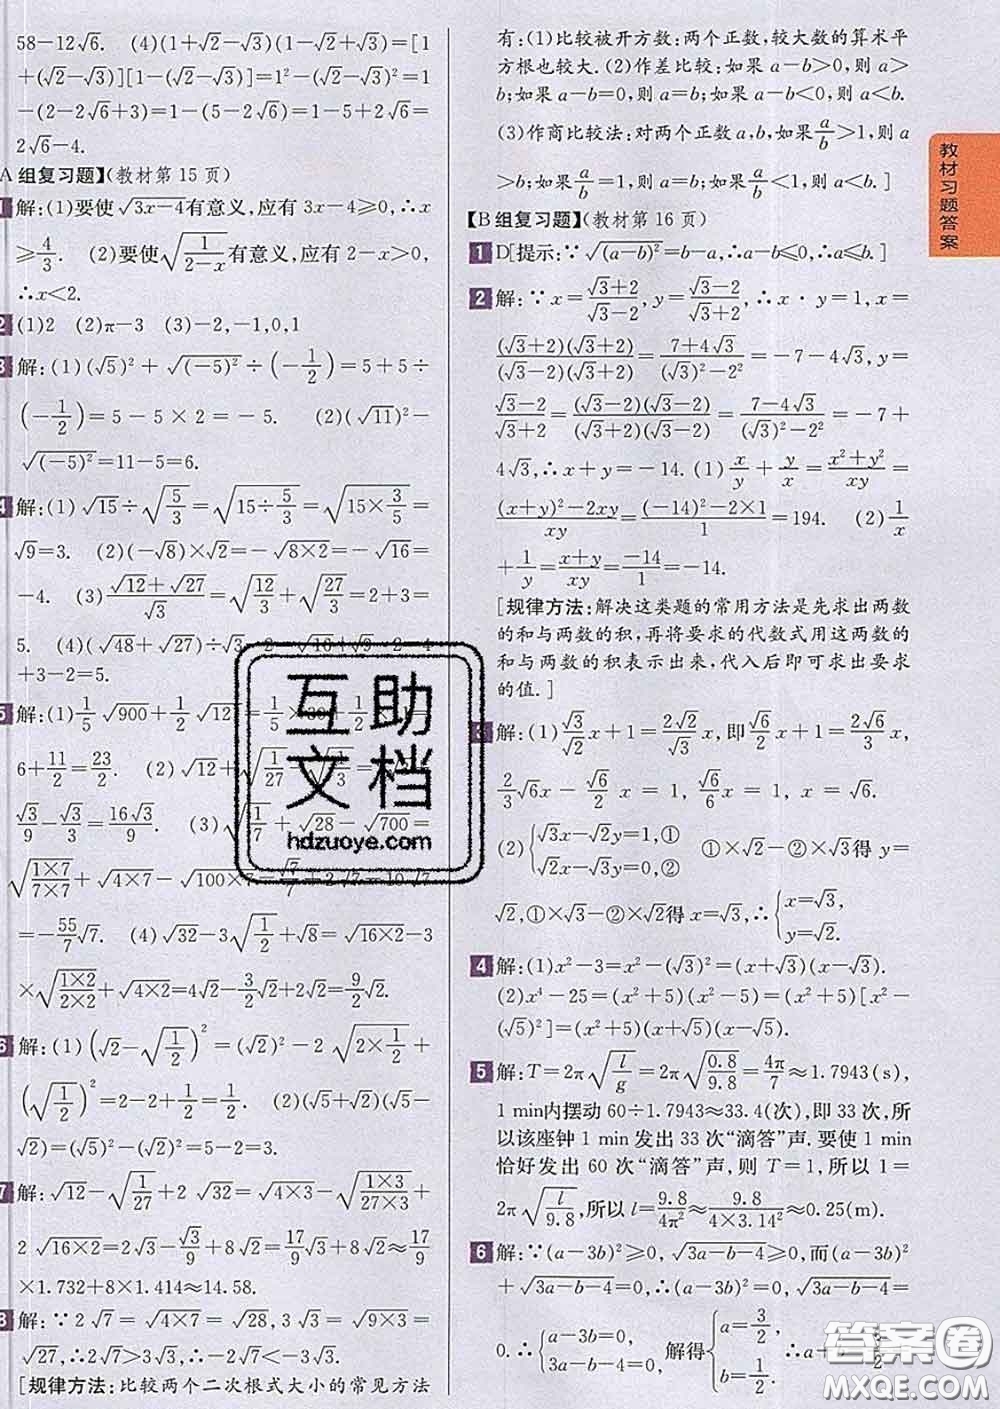 58−12√6. (4)(1+√2−√3)(1−√2+√3)=[1
+(√2−√3)][1−(√2−√3)]=1²−(√2−√3)²=1
−(2−2√6+3)=1−(5−2√6)=1−5+2√6=
2√6−4.
A组复习题】(教材第15页)
解:(1)要使√(3x−4)有意义,应有3x−4≥0,∴x
≥4/3. (2)要使√(1/(2−x))有意义,应有2−x>0,
∴x<2.
2 (1)2 (2)π−3 (3)−2,−1,0,1
3 解:(1)(√5)²+√(−5)²÷(−1/2)=5+5÷
(−1/2)=5−5×2=−5. (2)(√11)²−
√(−5)²=11−5=6.
4 解:(1)√15÷√(5/3)=√(15÷5/3)=√(15×3/5)=
√9=3. (2)(−√8)×√2=−√(8×2)=−√16=
−4. (3)(√12+√27)/√3=√(12/3)+√(27/3)=2+3=
5. (4)(√48+√27)÷√3−2=√16+√9−2=4
+3−2=5.
5 解:(1)1/5√900+1/2√12
6+11/2=23/2. (2)√12+√(1/27)
√3/9−√3/3=16√3/9. (3)√(1/7)+√28−√700=
√((1×7)/(7×7))+√(4×7)−√(100×7)=√7/7+2√7−10√7
=−55/7√7. (4)√32−3√(1/2)+√8=√(16×2)−3
×√((1×2)/(2×2))+√(4×2)=4√2−3/2√2+2√2=9/2√2.
6 解:(1)(√2−√(1/2))²=(√2)²−2√(2×1/2)+
(√(1/2))²=2−2+1/2=1/2. (2)(√5+√2)(√5−
√2)=(√5)²−(√2)²=5−2=3.
7 解:√12−√(1/27)+2√32=√(4×3)−√((1×3)/(27×3))+
2√(16×2)=2√3−√3/9+8√2=17/9√3+8√2≈17/9
×1.732+8×1.414≈14.58.
8 解:∵2√7=√(4×7)=√28,3√3=√(9×3)=
√27,∴2√7>3√3,∴−2√7<−3√3.
[规律方法:比较两个二次根式大小的常见方法
有:(1)比较被开方数:两个正数,较大数的算术平
方根也较大.(2)作差比较:如果a−b>0,则a>
b;如果a−b=0,则a=b;如果a−b<0,则a<b.
(3)作商比较法:对两个正数a,b,如果a/b>1,则a
>b;如果a/b=1,则a=b;如果a/b<1,则a<b.]
【B组复习题】(教材第16页)
1 D[提示:∵√(a−b)²=b−a,∴a−b≤0,∴a≤b.]
2 解:∵x=(√3+2)/(√3−2),y=(√3−2)/(√3+2),∴x·y=1,x=
(√3+2)(√3+2)/(√3−2)(√3+2)=(7+4√3)/((√3)²−2²)=−7−4√3,y=
(√3−2)/(√3+2)=(√3−2)(√3−2)/(√3+2)(√3−2)=(7−4√3)/((√3)²−2²)=−7+
4√3,∴x+y=−14. (1)x/y+y/x=(x²+y²)/xy=
((x+y)²−2xy)/xy=((−14)²−2×1)/1=194. (2)1/x
+1/y=(x+y)/xy=−14/1=−14.
[规律方法:解决这类题的常用方法是先求出两数
的和与两数的积,再将要求的代数式用这两数的
和与两数的积表示出来,代入后即可求出要求
的值.]
3 解:(1)√3/√2x+1=2√2/√3x,即√6/2x+1=2√6/3x,
2/3√6x−√6/2x=1,√6/6x=1,x=√6.
(2){√3x−√2y=1,① ①×√2−②×√3得y=
√2x−√3y=0,②
√2,①×√3−②×√2得x=√3,∴{x=√3,
y=√2.
4 解:(1)x²−3=x²−(√3)²=(x+√3)(x−√3).
(2)x⁴−25=(x²+5)(x²−5)=(x²+5)[x²−
(√5)²]=(x²+5)(x+√5)(x−√5).
5 解:T=2π√(l/g)=2π√(0.8/9.8)=4π/7≈1.7943(s),
1 min内摆动60÷1.7943≈33.4(次),即33次,所
以该座钟1 min发出33次“滴答”声.要使1 min
恰好发出60次“滴答”声,则T=1,所以1=
2π√(l/9.8),所以l=9.8/4π²≈9.8/(4×3.14²)≈0.25(m).
6 解:∵(a−3b)²≥0,√(3a−b−4)≥0,而(a−3b)²
+√(3a−b−4)=0,∴(a−3b)²=0,√(3a−b−4)=
0.∴{a−3b=0, 解得{a=3/2, ∴a+
3a−b−4=0, b=1/2.
教材习题答案
互助
文档
hdzuoye.com
答案圈
MXQE.COM